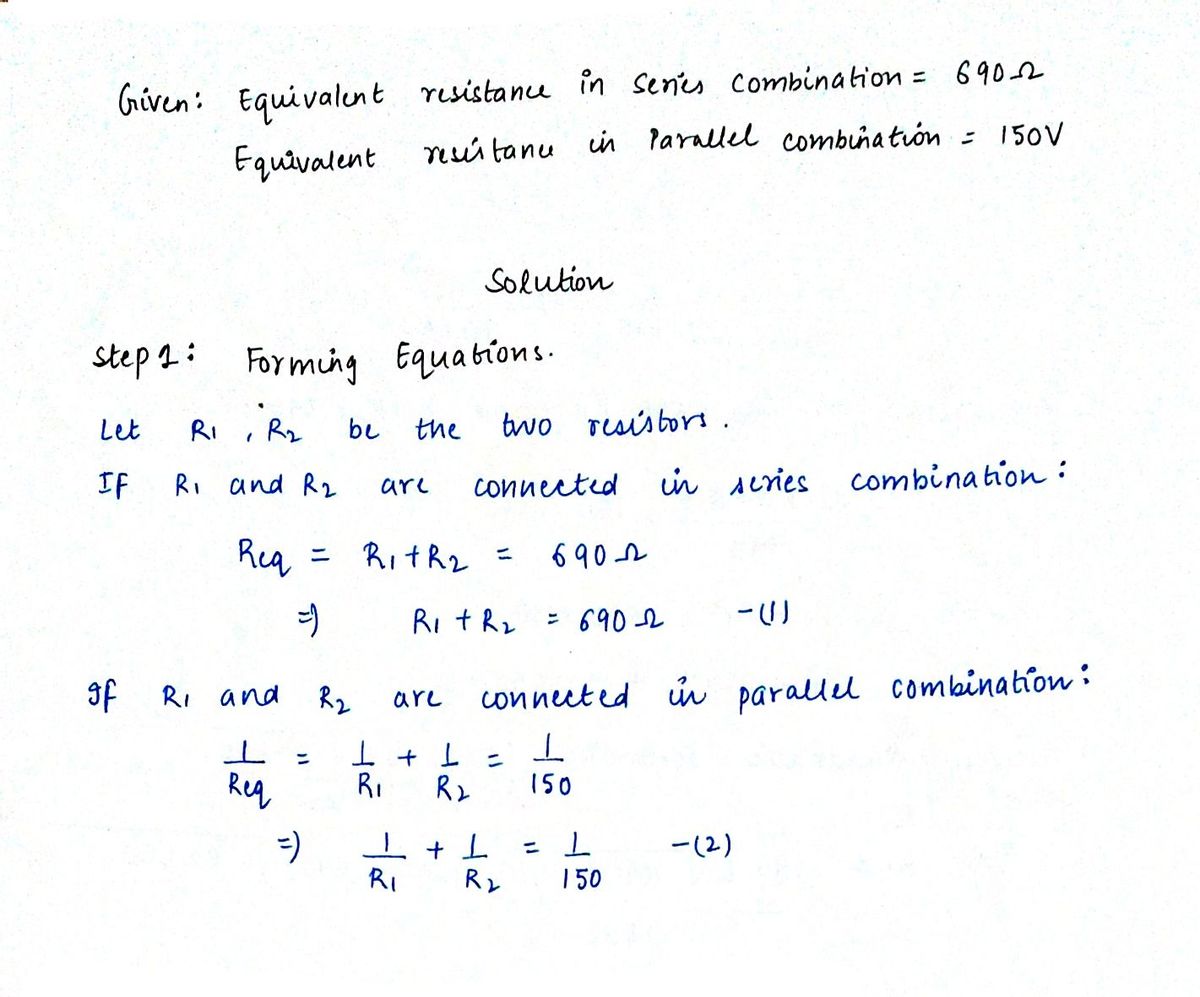 Given: Equivalent resistance in series combination = 690Ω
Equivalent resistance in Parallel combination = 150V
Solution
Step 1: Forming Equations.
Let R1, R2 be the two resistors.
IF R1 and R2 are connected in series combination:
Req = R1 + R2 = 690Ω
=) R1 + R2 = 690Ω -(1)
If R1 and R2 are connected in parallel combination:
1/Req = 1/R1 + 1/R2 = 1/150
=) 1/R1 + 1/R2 = 1/150 -(2)